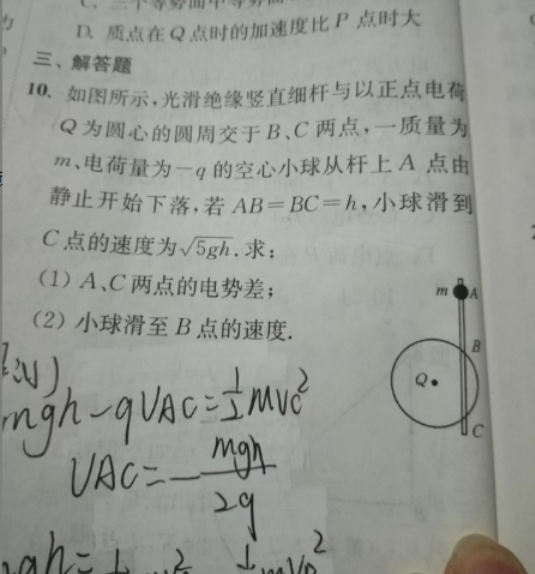 D. 质点在Q点时的加速度比P点时大
三、解答题
10. 如图所示,光滑绝缘竖直细杆与以正点电荷
Q为圆心的圆周交于B、C两点,一质量为
m、电荷量为-q的空心小球从杆上A点由
静止开始下落,若AB=BC=h,小球滑到
C点的速度为√5gh.求:
(1) A、C两点的电势差;
(2) 小球滑至B点的速度.
m A
B
Q
C
mgh-qUAC=1/2mVC²
UAC=-mgh/2q